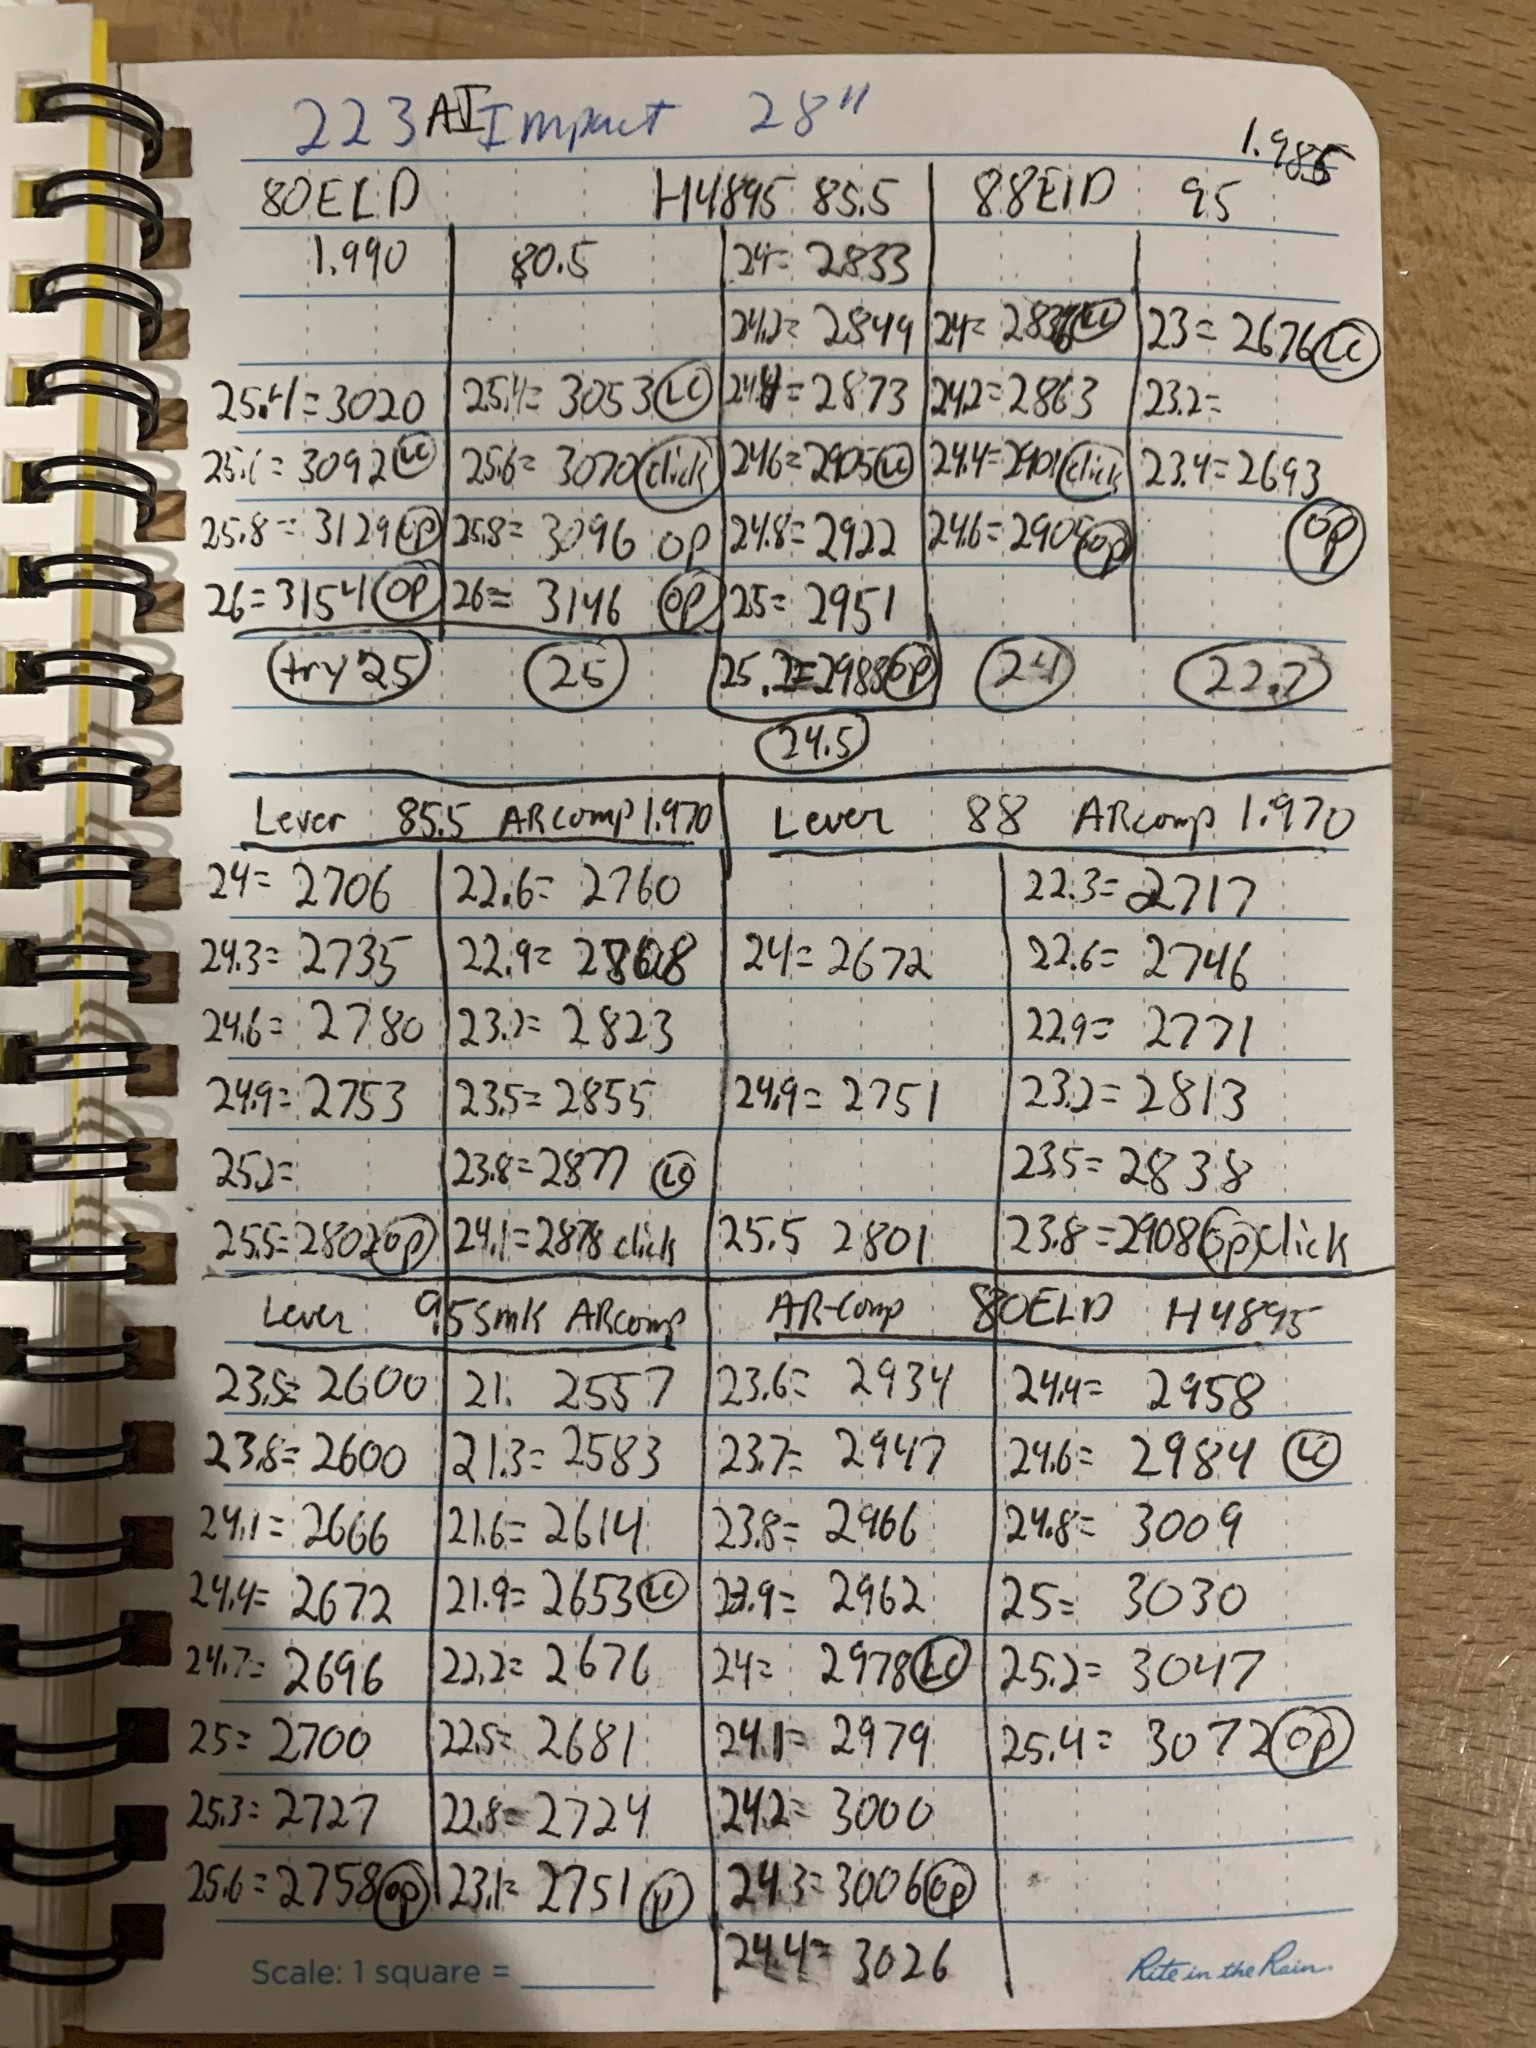 223 AI Impact 28"
1.985
80ELD H4895 85.5 88ELD 95
1.990 80.5 24= 2833
24.2= 2849 24= 2836 LC 23=2676 LC
25.4=3020 25.4= 3053 LC 24.4= 2873 24.2=2863 23.2=
25.6=3092 LC 25.6= 3070 click 24.6=2905 LC 24.4=2901 click 23.4=2693
25.8=3129 op 25.8= 3096 op 24.8=2922 24.6=2905 op op
26=3154 op 26= 3146 op 25= 2951
try 25 25 25.2=2988 op 24 22.7
24.5
Lever 85.5 ARcomp 1.970 Lever 88 ARcomp 1.970
24= 2706 22.6= 2760 22.3=2717
24.3= 2735 22.9= 24=2672 22.6= 2746
24.6= 2780 23.2= 2823 22.9= 2771
24.9= 2753 23.5=2855 24.9=2751 23.2=2813
25.2= 23.8=2877 LC 23.5=2838
25.5=2802 op 24.1=2878 click 25.5 2801 23.8=2908 op click
Lever 95smk ARcomp AR-Comp 80ELD H4895
23.5= 2600 21. 2557 23.6= 2934 24.4= 2958
23.8=2600 21.3=2583 23.7= 2947 24.6= 2984 LC
24.1=2666 21.6=2614 23.8= 2966 24.8= 3009
24.4=2672 21.9=2653 LC 23.9= 2962 25= 3030
24.7= 2696 22.2= 2676 24= 2978 LC 25.2= 3047
25=2700 22.5=2681 24.1=2979 25.4= 3072 op
25.3=2727 22.8=2724 24.2= 3000
25.6=2758 op 23.1= 2751 p 24.3=3006 op
24.4= 3026
Scale: 1 square = Rite in the Rain